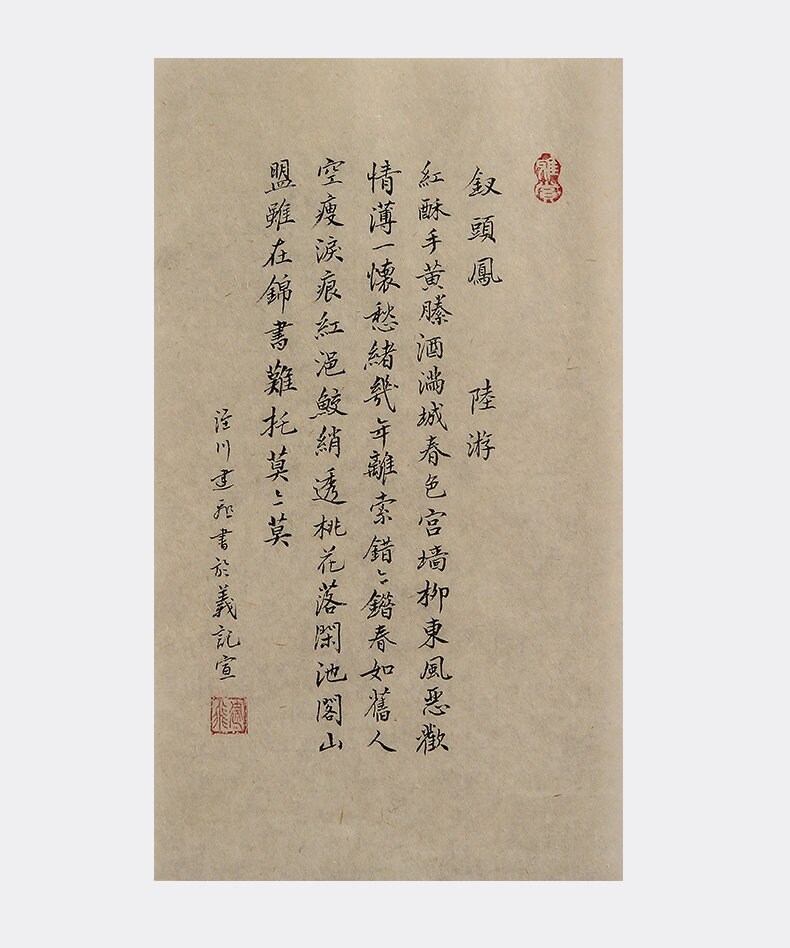 釵頭鳳 陸游
紅酥手黄縢酒满城春色宫墙柳東風惡歡
情薄一懷愁緒幾年離索錯〻錯春如舊人
空瘦淚痕紅浥鮫綃透桃花落閑池閣山
盟雖在錦書難托莫〻莫
泾川建飛書於義記宣
建飛